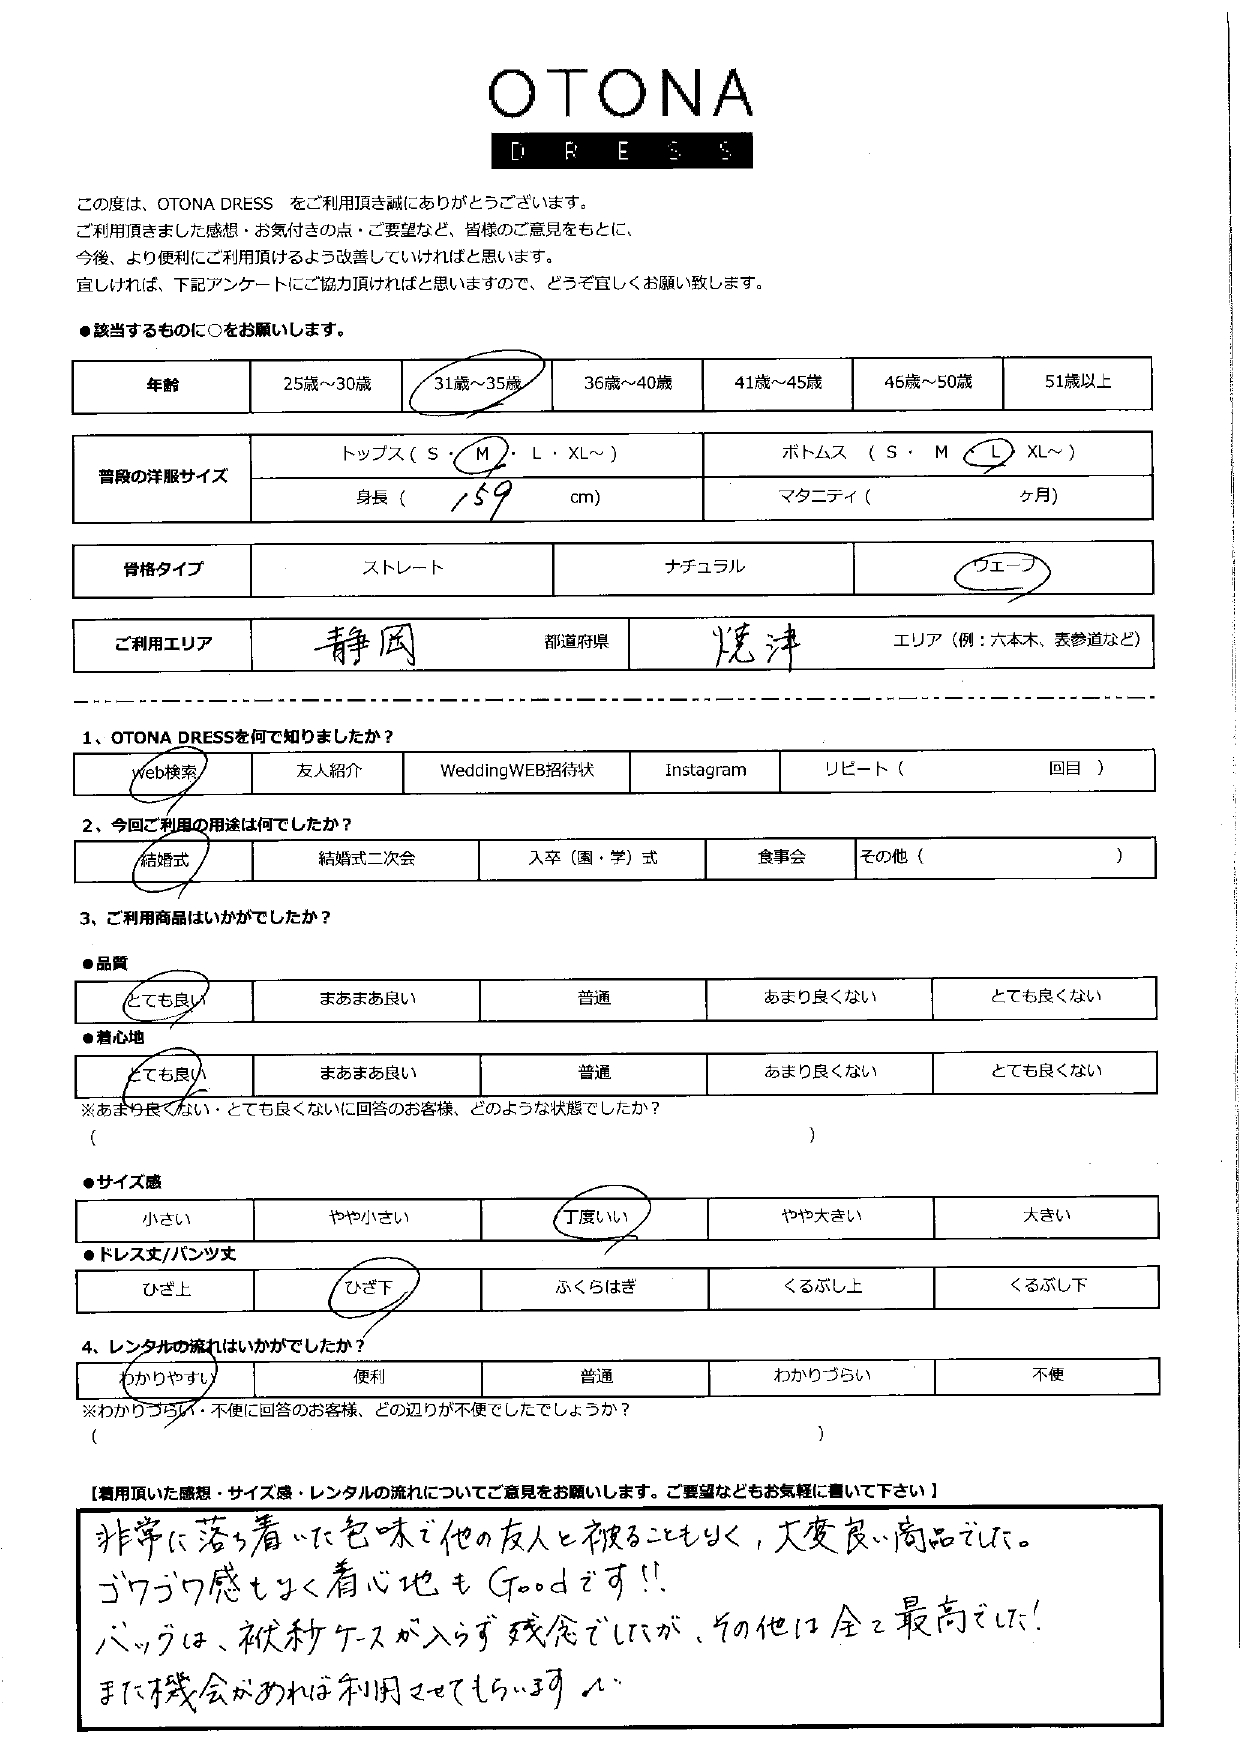 OTONA
DRESS
この度は、OTONA DRESS　をご利用頂き誠にありがとうございます。
ご利用頂きました感想・お気付きの点・ご要望など、皆様のご意見をもとに、
今後、より便利にご利用頂けるよう改善していければと思います。
宜しければ、下記アンケートにご協力頂ければと思いますので、どうぞ宜しくお願い致します。
●該当するものに○をお願いします。
年齢 25歳～30歳 31歳～35歳 36歳～40歳 41歳～45歳 46歳～50歳 51歳以上
普段の洋服サイズ トップス ( S ・ M ・ L ・ XL～ ) ボトムス ( S ・ M ・ L ・ XL～ )
身長 ( 159 cm) マタニティ ( ヶ月)
骨格タイプ ストレート ナチュラル ウェーブ
ご利用エリア 静岡 都道府県 焼津 エリア（例：六本木、表参道など）
1、OTONA DRESSを何で知りましたか？
Web検索 友人紹介 WeddingWEB招待状 Instagram リピート（ 回目 ）
2、今回ご利用の用途は何でしたか？
結婚式 結婚式二次会 入卒（園・学）式 食事会 その他（ ）
3、ご利用商品はいかがでしたか？
●品質
とても良い まあまあ良い 普通 あまり良くない とても良くない
●着心地
とても良い まあまあ良い 普通 あまり良くない とても良くない
※あまり良くない・とても良くないに回答のお客様、どのような状態でしたか？
( )
●サイズ感
小さい やや小さい 丁度いい やや大きい 大きい
●ドレス丈/パンツ丈
ひざ上 ひざ下 ふくらはぎ くるぶし上 くるぶし下
4、レンタルの流れはいかがでしたか？
わかりやすい 便利 普通 わかりづらい 不便
※わかりづらい・不便に回答のお客様、どの辺りが不便でしたでしょうか？
( )
【着用頂いた感想・サイズ感・レンタルの流れについてご意見をお願いします。ご要望などもお気軽に書いて下さい】
非常に落ち着いた色味で他の友人と被ることもなく、大変良い商品でした。
ゴワゴワ感もなく着心地もGoodです!!
バッグは、袱紗ケースが入らず残念でしたが、その他は全て最高でした!
また機会があれば利用させてもらいます